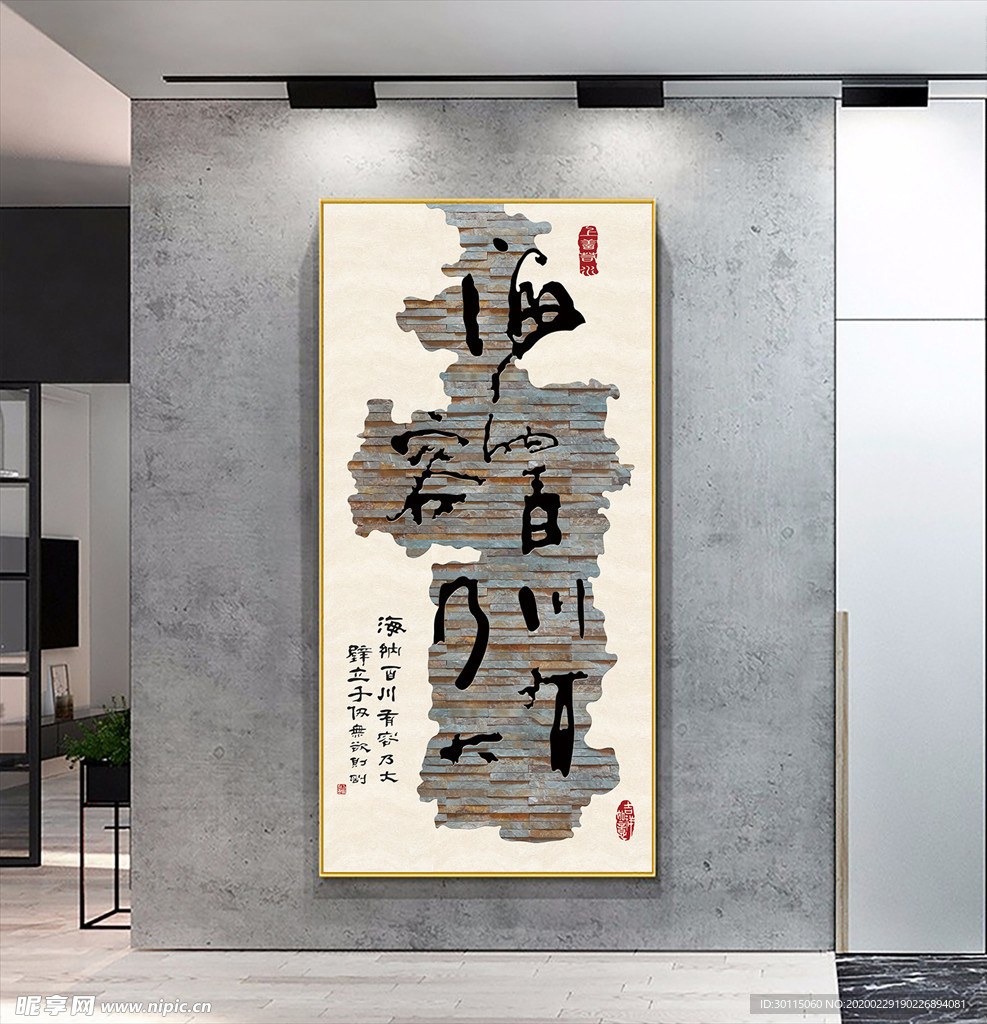 上善若水
海纳百川有
容乃大
海纳百川有容乃大
壁立千仞無欲則刚
吉祥如意
昵享网 www.nipic.cn
ID:30115060 NO:20200229190226894081